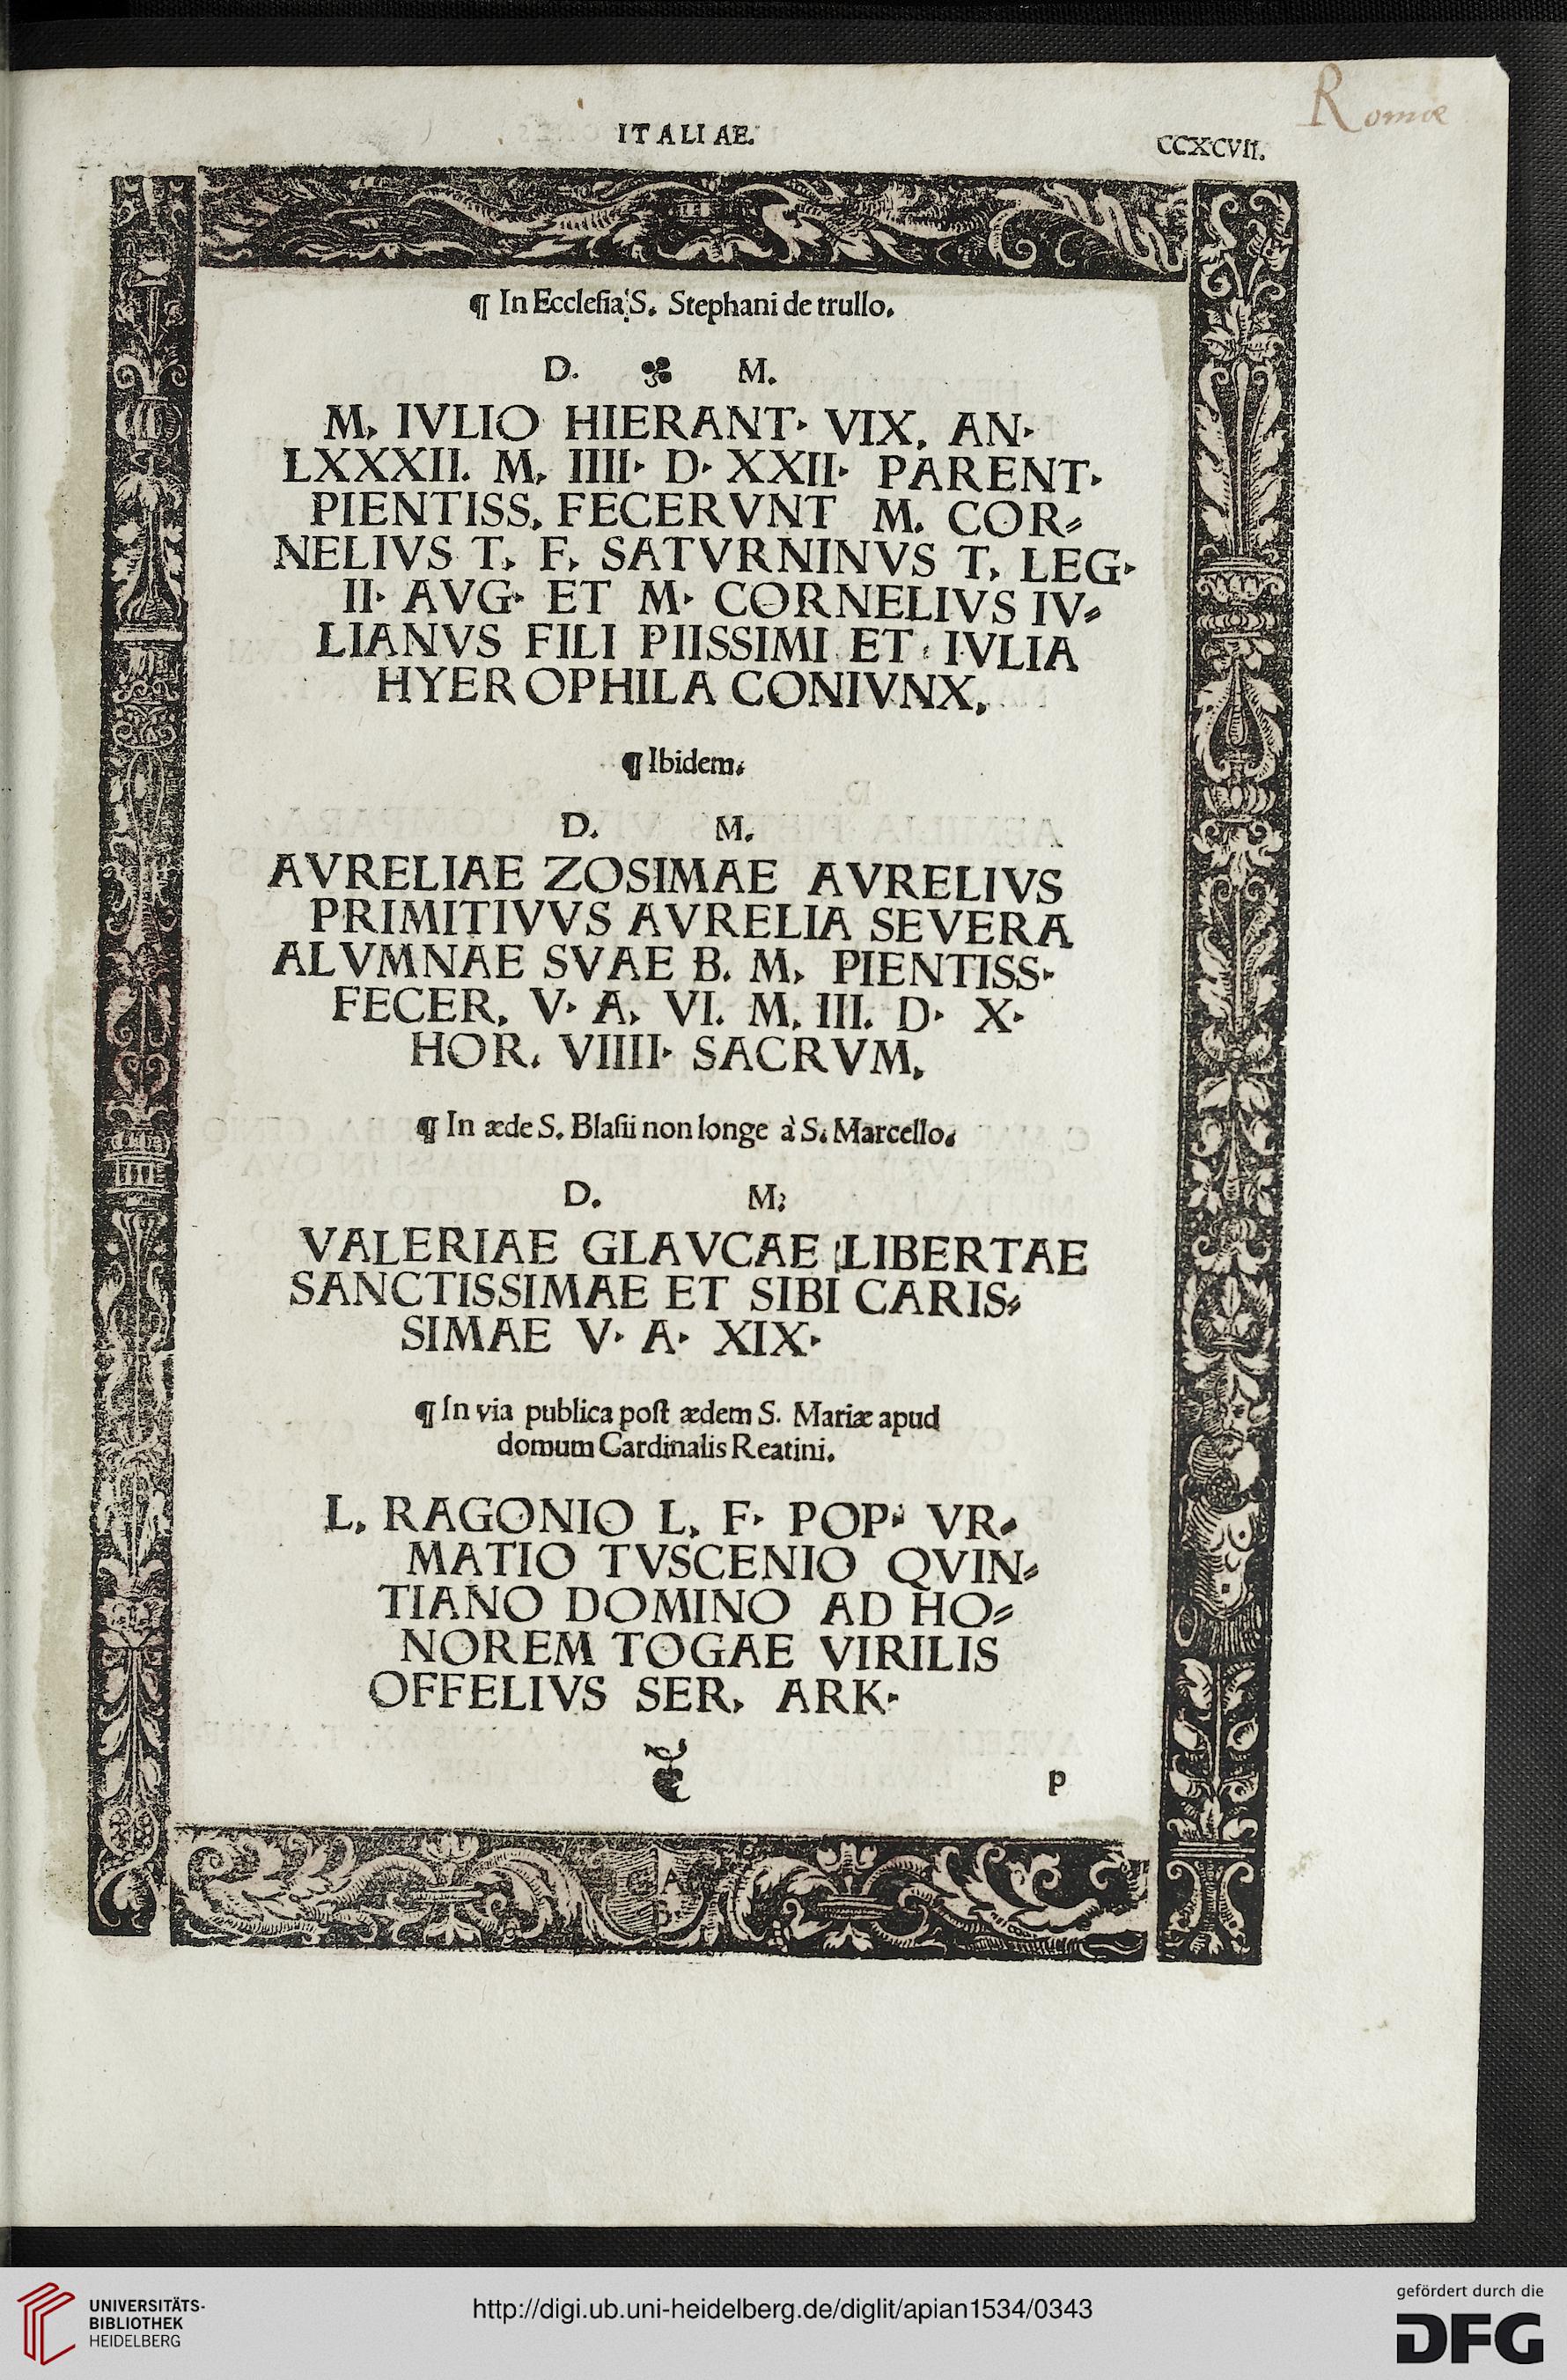 Romæ
ITALIAE.
CCXCVII.
¶ In Ecclesia S. Stephani de trullo.
D. M.
M, IVLIO HIERANT· VIX, AN·
LXXXII. M, IIII· D· XXII· PARENT·
PIENTISS, FECERVNT M. COR⸗
NELIVS T, F, SATVRNINVS T, LEG·
II· AVG· ET M· CORNELIVS IV⸗
LIANVS FILI PIISSIMI ET IVLIA
HYEROPHILA CONIVNX,
¶ Ibidem.
D. M.
AVRELIAE ZOSIMAE AVRELIVS
PRIMITIVVS AVRELIA SEVERA
ALVMNAE SVAE B. M, PIENTISS·
FECER, V· A, VI. M, III. D· X·
HOR. VIIII· SACRVM,
¶ In æde S. Blasii non longe à S. Marcello.
D. M;
VALERIAE GLAVCAE LIBERTAE
SANCTISSIMAE ET SIBI CARIS⸗
SIMAE V· A· XIX·
¶ In via publica post ædem S. Mariæ apud
domum Cardinalis Reatini.
L, RAGONIO L, F· POP· VR⸗
MATIO TVSCENIO QVIN⸗
TIANO DOMINO AD HO⸗
NOREM TOGAE VIRILIS
OFFELIVS SER, ARK·
p
UNIVERSITÄTS-
BIBLIOTHEK
HEIDELBERG
http://digi.ub.uni-heidelberg.de/diglit/apian1534/0343
gefördert durch die
DFG